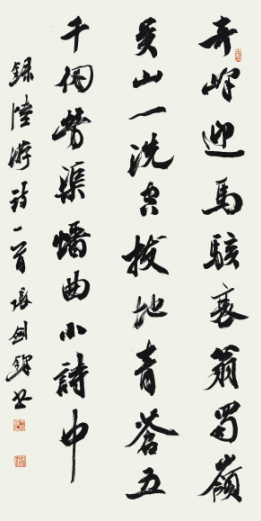 奇峰迎馬駭衰翁蜀嶺
吴山一洗空拔地青蒼五
千仞勞渠蟠曲小詩中
録陸游詩一首 張劍鋒書